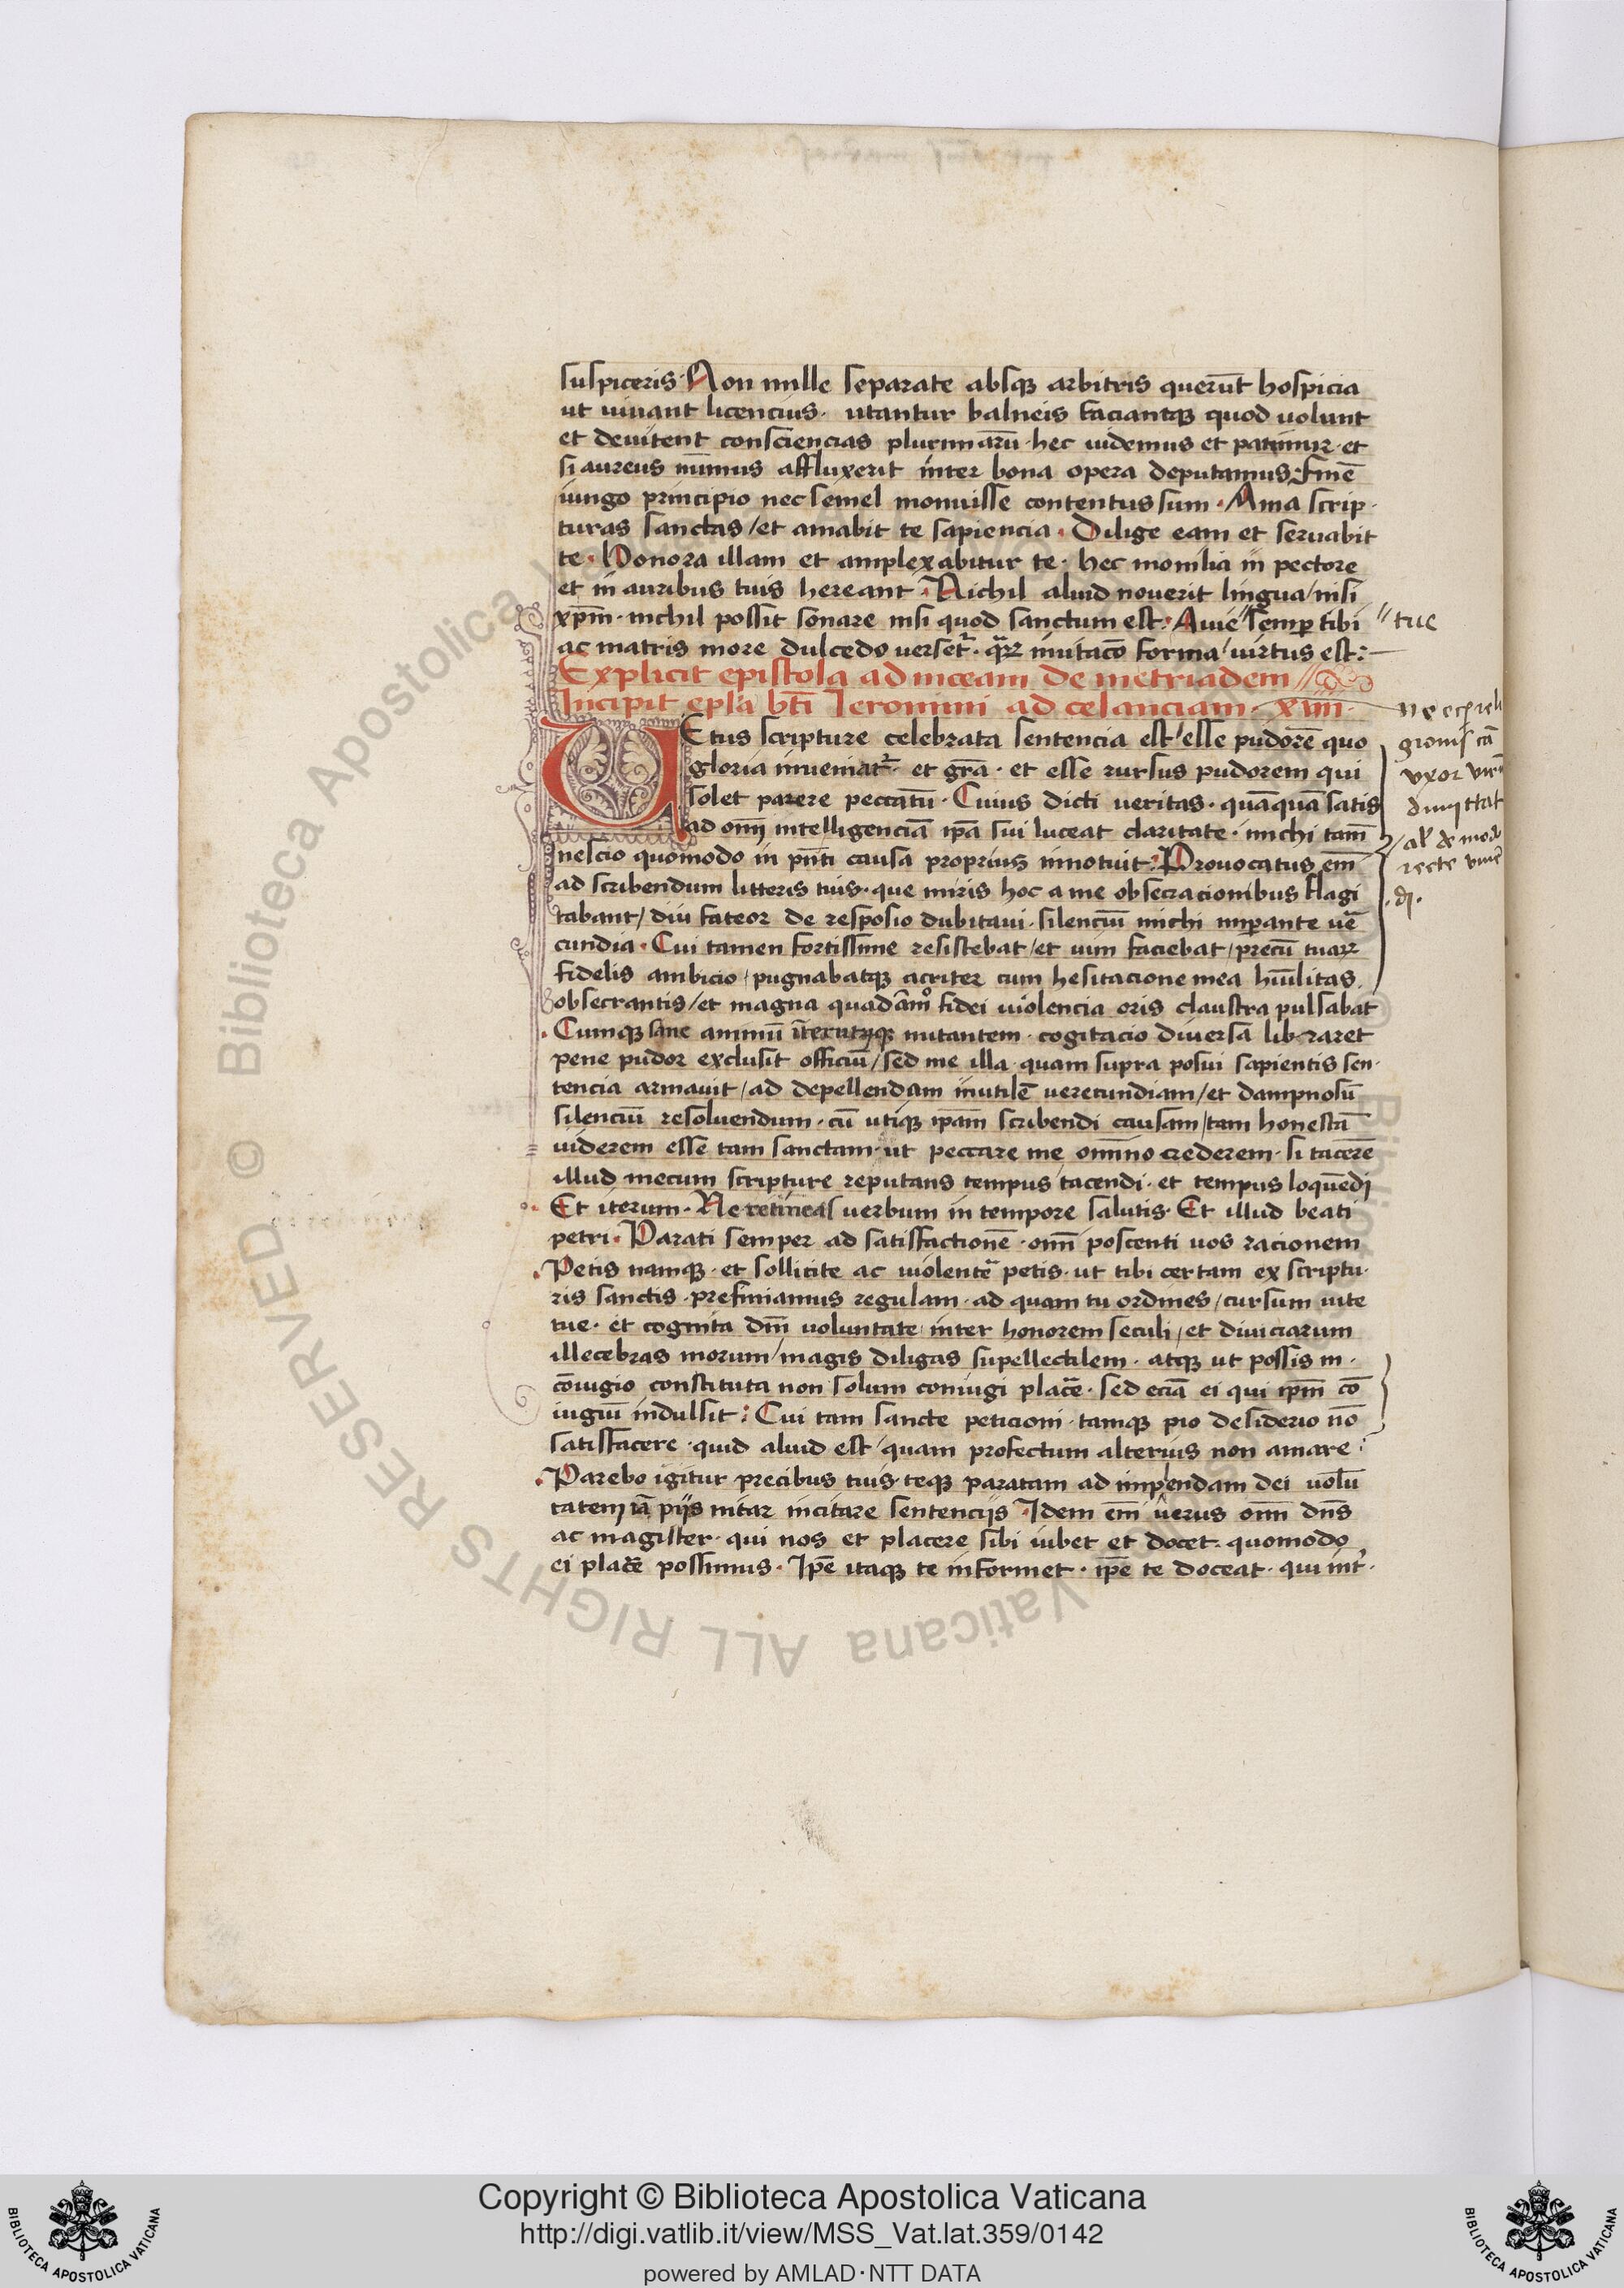 suspiceris · Non nulle separate absqꝫ arbitris querūt hospicia
ut uiuant licencius · utantur balneis faciantqꝫ quod uolunt
et deuitent consciencias plurimarū · hec uidemus et patimur · et
si aureus nūmus affluxerit inter bona opera deputamus : Finē
iungo principio nec semel monuisse contentus sum · Ama scrip·
turas sanctas / et amabit te sapiencia · Dilige eam et seruabit
te · Honora illam et amplexabitur te · hec monilia in pectore
et in auribus tuis hereant · Nichil aliud nouerit lingua / nisi
xp̄m · nichil possit sonare nisi quod sanctum est : Auie " semꝑ tibi " tue
ac matris more dulcedo uerset᷑ · qr̄ꝝ imitaco forma / uirtus est :
Explicit epistola ad niceam de metriadem
Incipit epl̄a bt̄i Ieronimi ad celanciam · xiiii ·
UEtus scripture celebrata sentencia est / esse pudorē quo
gloria inueniat᷑ · et grā · et esse rursus pudorem qui
solet parere peccatū · Cuius dicti ueritas · quāquā satis
ad om̄j intelligenciā ip̄a sui luceat claritate · michi tam̄
nescio quomodo in pn̄ti causa proprius innotuit : Prouocatus em̄
ad scribendum litteris tuis · que miris hoc a me obsecracionibus flagi
tabant / diu fateor de resposio dubitaui · silenciū michi imꝑante ue᷑
cundia · Cui tamen fortissime resistebat / et uim faciebat / precū tuaꝝ
fidelis ambicio / pugnabatqꝫ acriter cum hesitacione mea hūilitas
obsecrantis / et magna quadām° fidei uiolencia oris claustra pulsabat
· Cumqꝫ sane animū īter utrqꝫ nutantem · cogitacio diuersa libraret
pene pudor exclusit officiū / sed me illa · quam supra posui sapientis sen·
tencia armauit / ad depellendam inutilē uerecundiam / et dampnosū
silenciū resoluendum · cū utiqꝫ ipam̄ scribendi causam / tam honestā
uiderem esse tam sanctam · ut peccare me om̄ino crederem · si tacerē
illud mecum scripture reputans tempus tacendi · et tempus loquēdi
Et iterum · Ne retineas uerbum in tempore salutis · Et illud beati
petri · Parati semper ad satisfactionē · om̄i poscenti uos racionem
Petis namqꝫ · et sollicite ac uiolent᷑ petis · ut tibi certam ex scriptu·
ris sanctis · prefiniamus regulam · ad quam tu ordines / cursum uite
tue · et cognita dn̄i uoluntate inter honorem seculi / et diuiciarum
illecebras morum / magis diligas supellectilem · atqꝫ ut possis in ·
cōiugio constituta non solum coniugi placē · sed eciā ei qui ip̄m cō
iugiū indulsit : Cui tam sancte peticioni · tamqꝫ pio desiderio nō
satisfacere · quid aliud est / quam profectum alterius non amare :
Parebo igitur precibus tuis · teqꝫ paratam ad impendam dei uolū
tatem iā piis nitar incitare sentencijs · Idem em̄ uerus om̄i dn̄s
ac magister · qui nos et placere sibi iubet et docet · quomodo
ei placē possimus · Ip̄e itaqꝫ te informet · ip̄e te doceat · qui int᷑ ·
gionis cā
vxor virū
dimittat
recte viuē
di ·
© Biblioteca Apostolica Vaticana ALL RIGHTS RESERVED
Copyright © Biblioteca Apostolica Vaticana
http://digi.vatlib.it/view/MSS_Vat.lat.359/0142
powered by AMLAD·NTT DATA
BIBLIOTECA APOSTOLICA VATICANA
BIBLIOTECA APOSTOLICA VATICANA